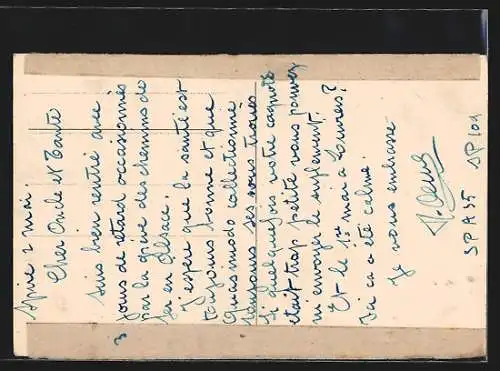 Spire 2 mai.
Cher Oncle et Tante
suis bien rentré avec
3 jours de retard occasionnés
par la grève des chemins de
fer en Alsace.
J'espère que la santé est
toujours bonne et que
Quasimodo collectionne
toujours ses sous troués
Si quelquefois votre cagnotte
était trop petite vous pouvez
m'envoyer le supplément.
Et le 1er mai a Tours?
Ici ca a été calme.
Je vous embrasse
SPA 35 SP 109